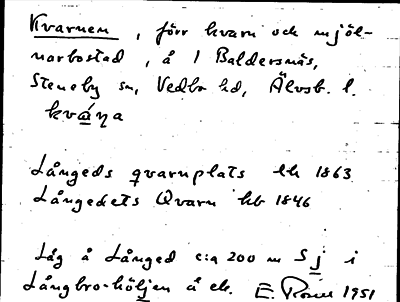 Kvarnen, förr kvarn och mjöl-
narbostad, å 1 Baldersnäs,
Steneby sn, Vedbo hd, Älvsb. l.
kvána
Långeds qvarnplats lk 1863
Långedets Qvarn hb 1846
Låg å Långed c:a 200 m Sj i
Långbro-höljen å ek. E. 1951